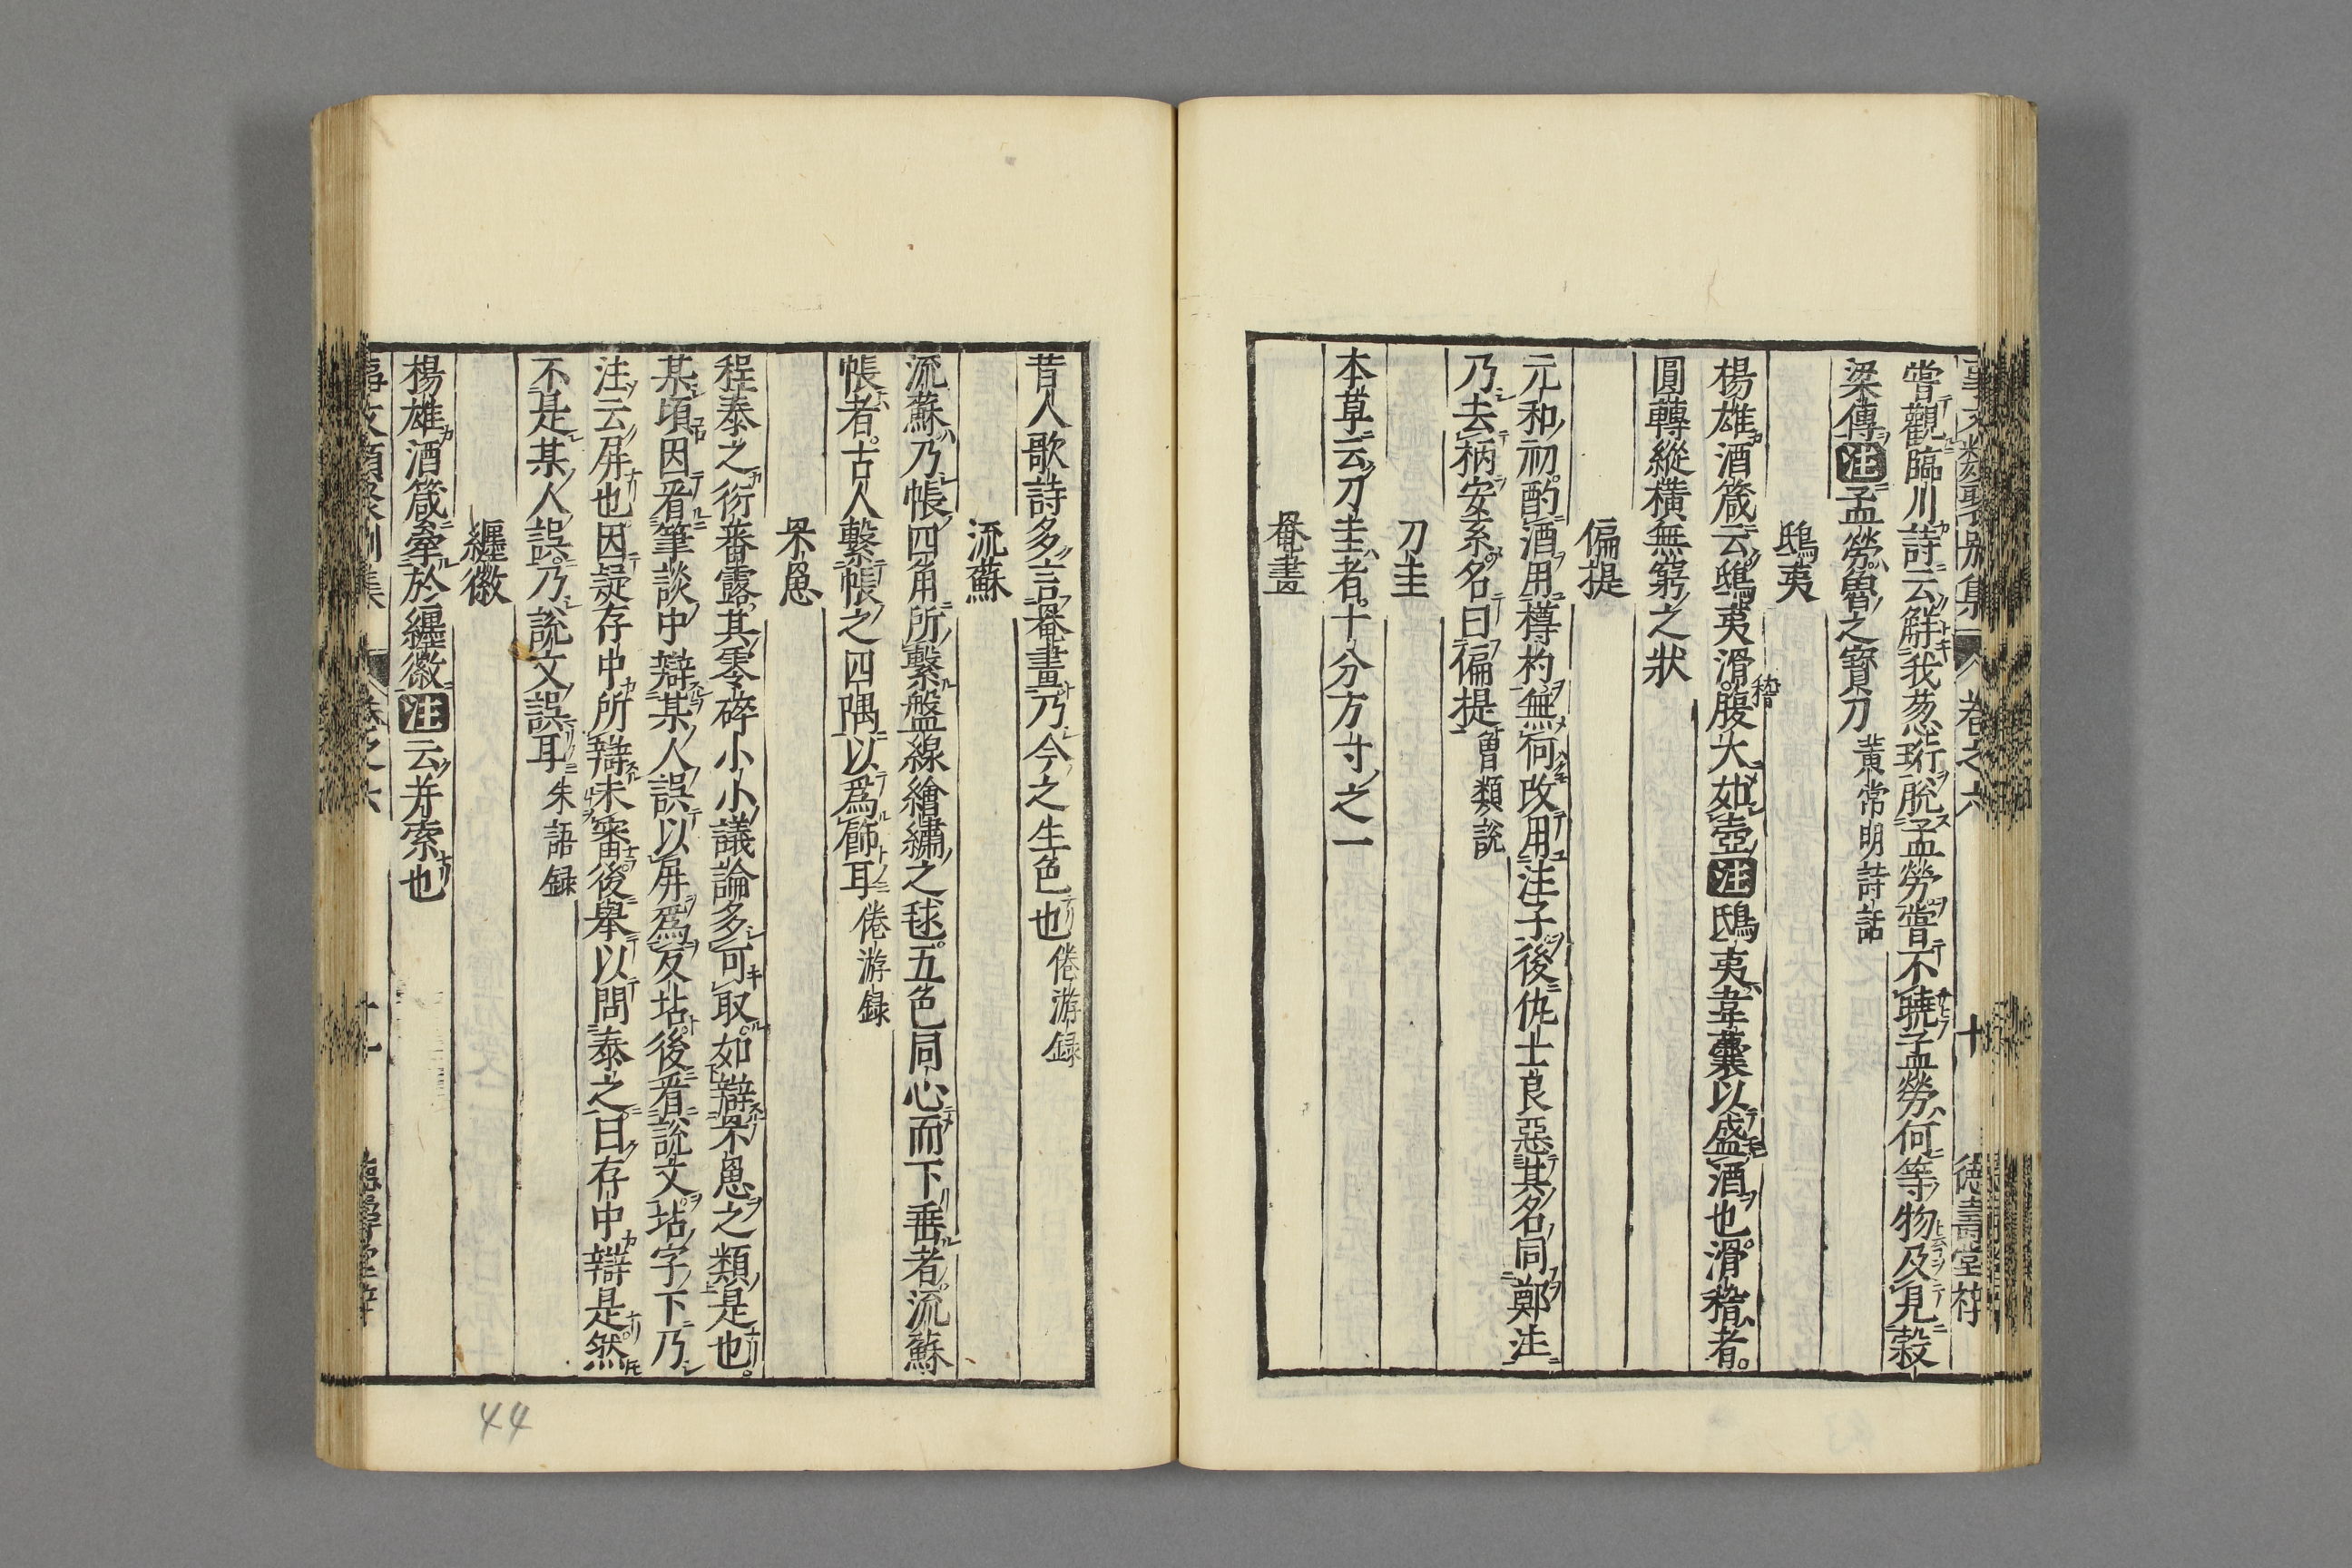 嘗觀臨川詩云觧我葱珩脱孟勞嘗不曉孟勞何等物及見穀
梁傳注孟勞魯之寳刀黄常明詩話
鴟夷
楊雄酒箴云鴟夷滑稽腹大如壺注鴟夷韋囊以盛酒也滑稽者
圓轉縱横無窮之狀
偏提
元和初酌酒用樽杓無何改用注子後仇士良惡其名同鄭注
乃去柄安系名曰偏提曽類説
刀圭
本草云刀圭者十分方寸之一
罨畫
昔人歌詩多言罨畫乃今之生色也倦游録
流蘇
流蘇乃帳四角所繫盤線繪繡之毬五色同心而下垂者流蘇
帳者古人繫帳之四隅以爲餙耳倦游録
罘罳
程泰之衍蕃露其零碎小小議論多可取如辯罘罳之類是也
某頃因看筆談中辯某人誤以屏爲反坫後看説文坫字下乃
注云屏也因疑存中所辯未審後舉以問泰之曰存中辯是然
不是某人誤乃説文誤耳朱語録
纒徽
楊雄酒箴牽於纒徽注云井索也